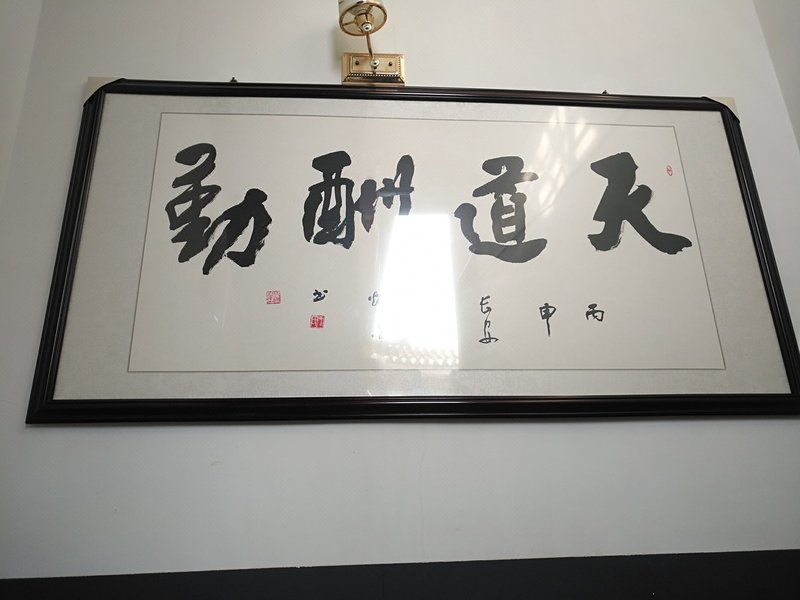 天道酬勤
丙申长安书